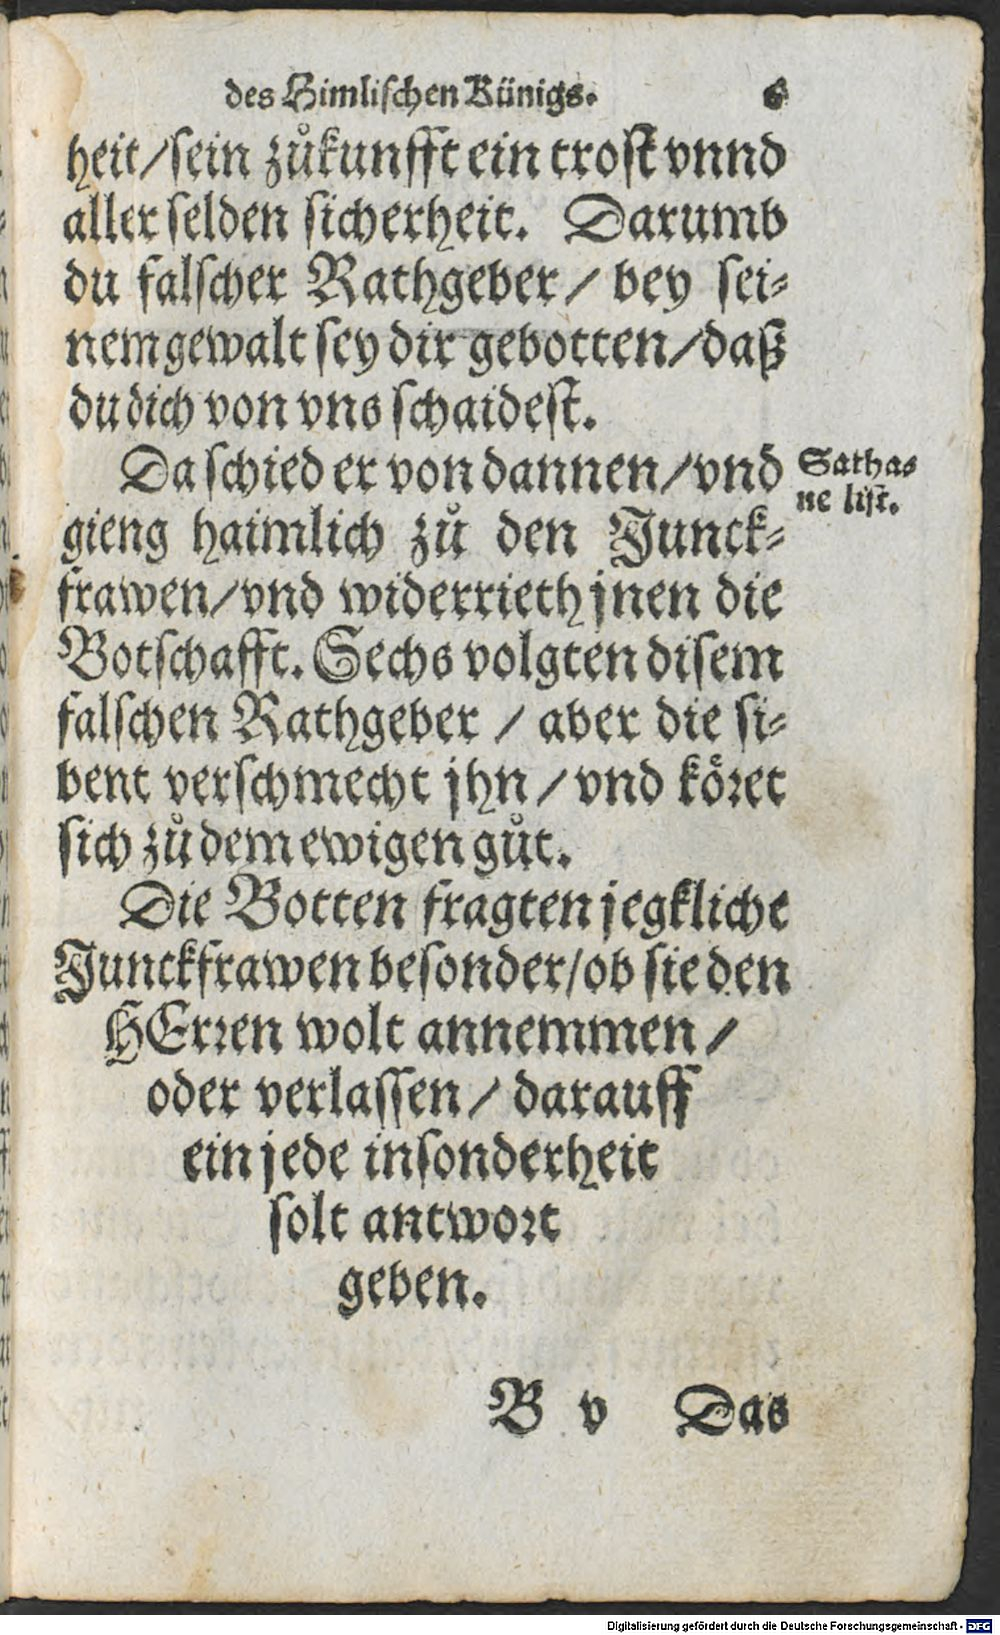 des Himlischen Künigs. 6
heit/sein zůkunfft ein trost vnnd
aller selden sicherheit. Darumb
du falscher Rathgeber/ bey sei-
nem gewalt sey dir gebotten/daß
du dich von vns schaidest.
Da schied er von dannen/vnd
Sathas
ne list.
gieng haimlich zů den Junck-
frawen/vnd widerrieth jnen die
Botschafft. Sechs volgten disem
falschen Rathgeber / aber die si-
bent verschmecht jhn/vnd köret
sich zů dem ewigen gůt.
Die Botten fragten jegkliche
Junckfrawen besonder/ob sie den
HErren wolt annemmen/
oder verlassen/ darauff
ein jede insonderheit
solt antwort
geben.
B v Das
Digitalisierung gefördert durch die Deutsche Forschungsgemeinschaft - DFG